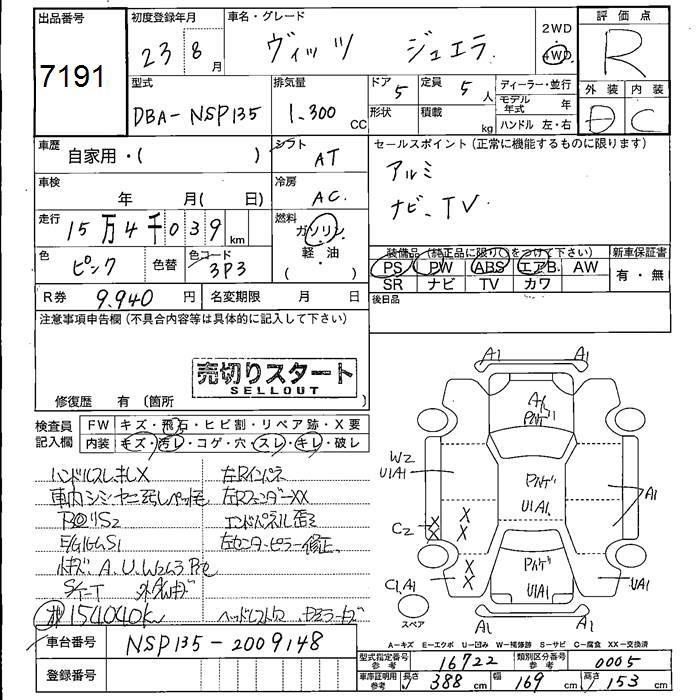 出品番号
7191
初度登録年月
23 8月
車名・グレード
ヴィッツ ジュエラ
2WD
4WD
評価点
R
型式
DBA-NSP135
排気量
1.300 CC
ドア 5
形状
定員 5人
積載 kg
ディーラー・並行
モデル年式 年
ハンドル 左・右
外装 内装
D C
車歴
自家用・( )
シフト
AT
セールスポイント(正常に機能するものに限ります)
アルミ
ナビ、TV
車検
年 月( 日)
冷房
AC
走行
15万4千039km
燃料
ガソリン
・
軽油
( )
色
ピンク
色替
色コード
3P3
装備品(純正品に限り○をつけて下さい)
PS PW ABS エアB. AW
SR ナビ TV カワ
新車保証書
有・無
R券 9.940円
名変期限 月 日
後日品
注意事項申告欄(不具合内容等は具体的に記入して下さい)
売切りスタート
SELLOUT
修復歴 有(箇所 )
検査員記入欄
FW キズ・飛石・ヒビ割・リペア跡・X要
内装 キズ・汚レ・コゲ・穴・スレ・キレ・破レ
左Rインパネ
左RフェンダーXX
エンドパネル歪ミ
左センターピラー修正
154040k
車台番号
NSP135-2009148
登録番号
A1 A1
A1
Pハゲ
W2
U1A1
Pハゲ
U1A1
A1
C2
X X
X X
X
X
C1,A1
Pハゲ
U1A1
U1A1
A1 A1
スペア
A-キズ E-エクボ U-凹み W-補修跡 S-サビ C-腐食 XX-交換済
型式指定番号
参考
16722
類別区分番号
参考
0005
車庫証明用
参考
長さ 388cm
幅 169cm
高さ 153cm